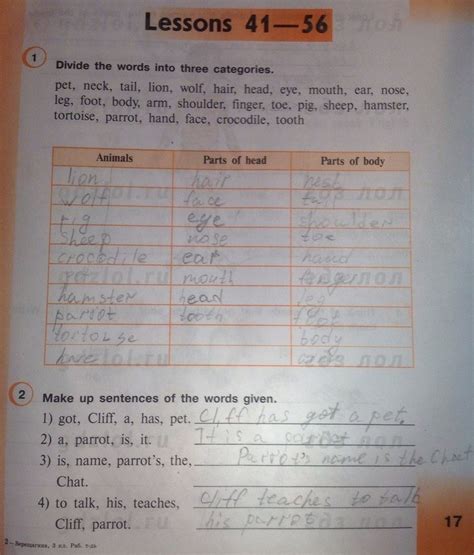 Lessons 41—56
1 Divide the words into three categories.
pet, neck, tail, lion, wolf, hair, head, eye, mouth, ear, nose,
leg, foot, body, arm, shoulder, finger, toe, pig, sheep, hamster,
tortoise, parrot, hand, face, crocodile, tooth
Animals Parts of head Parts of body
lion hair
wolf face
pig eye shoulder
sheep nose toe
crocodile ear hand
mouth
hamster head leg
parrot tooth
tortoise body
2 Make up sentences of the words given.
1) got, Cliff, a, has, pet. Cliff has got a pet.
2) a, parrot, is, it. It is a
3) is, name, parrot's, the, Parrot's name is the Chat
Chat.
4) to talk, his, teaches, Cliff teaches to talk
Cliff, parrot. his parrot
2 – Верещагина, 3 кл. Раб. т-дь
17